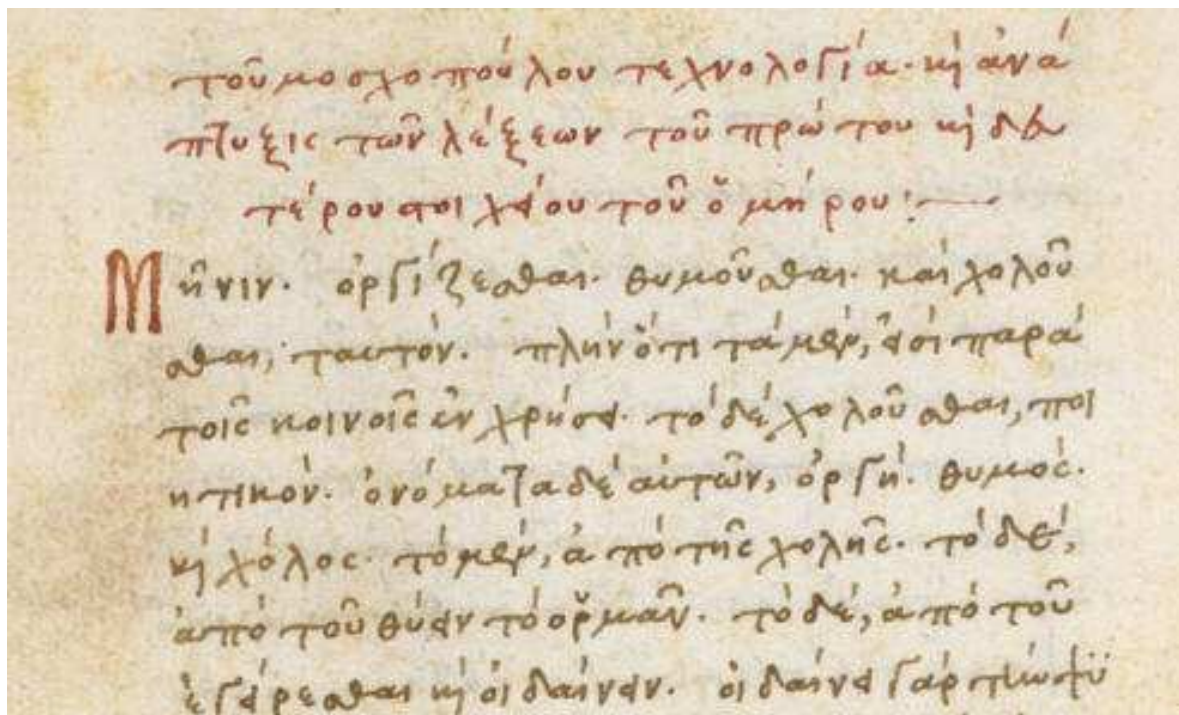 τοῦ μοσχοπούλου τεχνολογία· κὶ ἀνά
πτυξις τῶν λέξεων τοῦ πρώτου κὶ δευ
τέρου στοιχείου τοῦ ὁμήρου:
Μῆνιν· ὀργίζεσθαι· θυμοῦσθαι· καὶ χολοῦ
σθαι, ταυτόν. πλὴν ὅτι τὰ μὲν, εἰσὶ παρὰ
τοῖς κοινοῖς ἐν χρήσει· τὸ δὲ χολοῦσθαι, ποι
ητικόν. ὀνόματα δὲ αὐτῶν, ὀργή. θυμός.
κὶ χόλος. τὸ μὲν, ἀπὸ τῆς χολῆς. τὸ δὲ,
ἀπὸ τοῦ θύειν τὸ ὁρμᾶν. τὸ δὲ, ἀπὸ τοῦ
ἐγείρεσθαι κὶ οἰδαίνειν. οἰδαίνει γὰρ